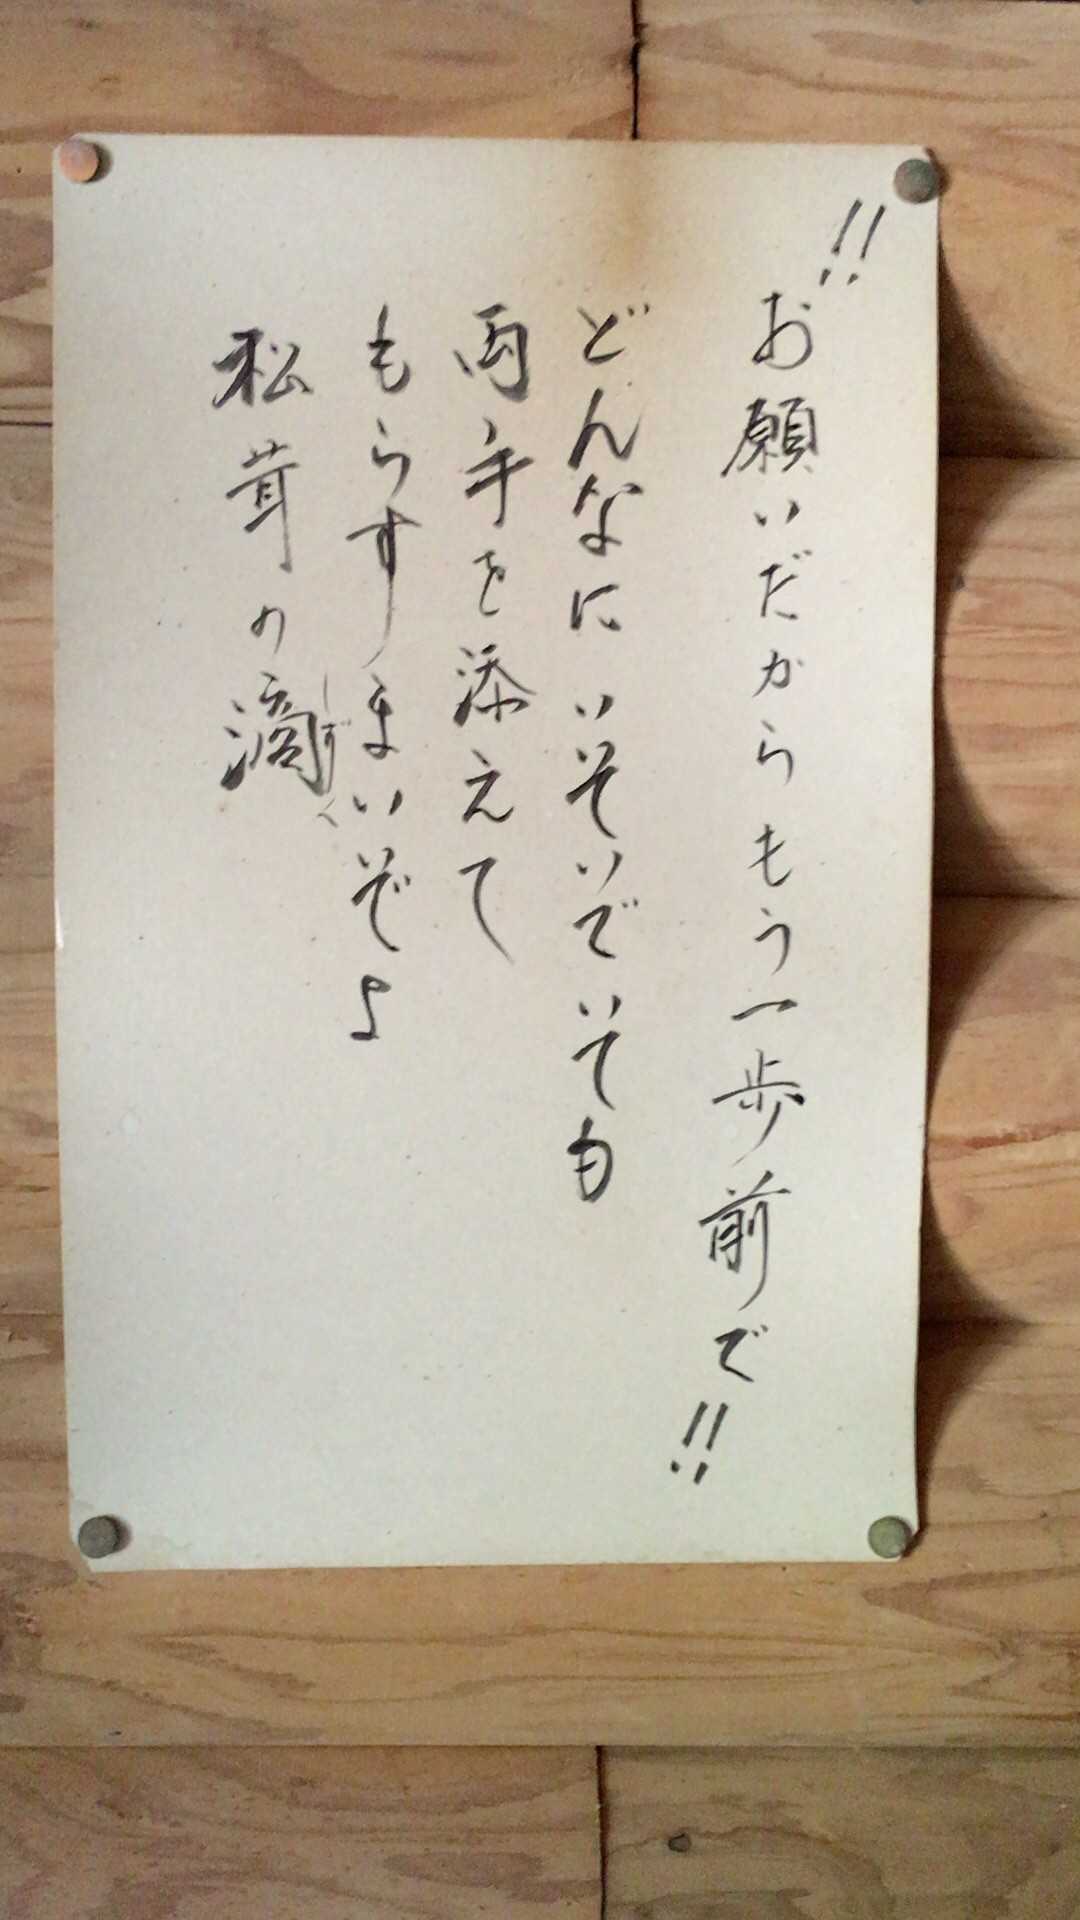 !!お願いだからもう一歩前で!!
どんなにいそいでいても
両手を添えて
もらすまいぞよ
松茸の滴
しずく